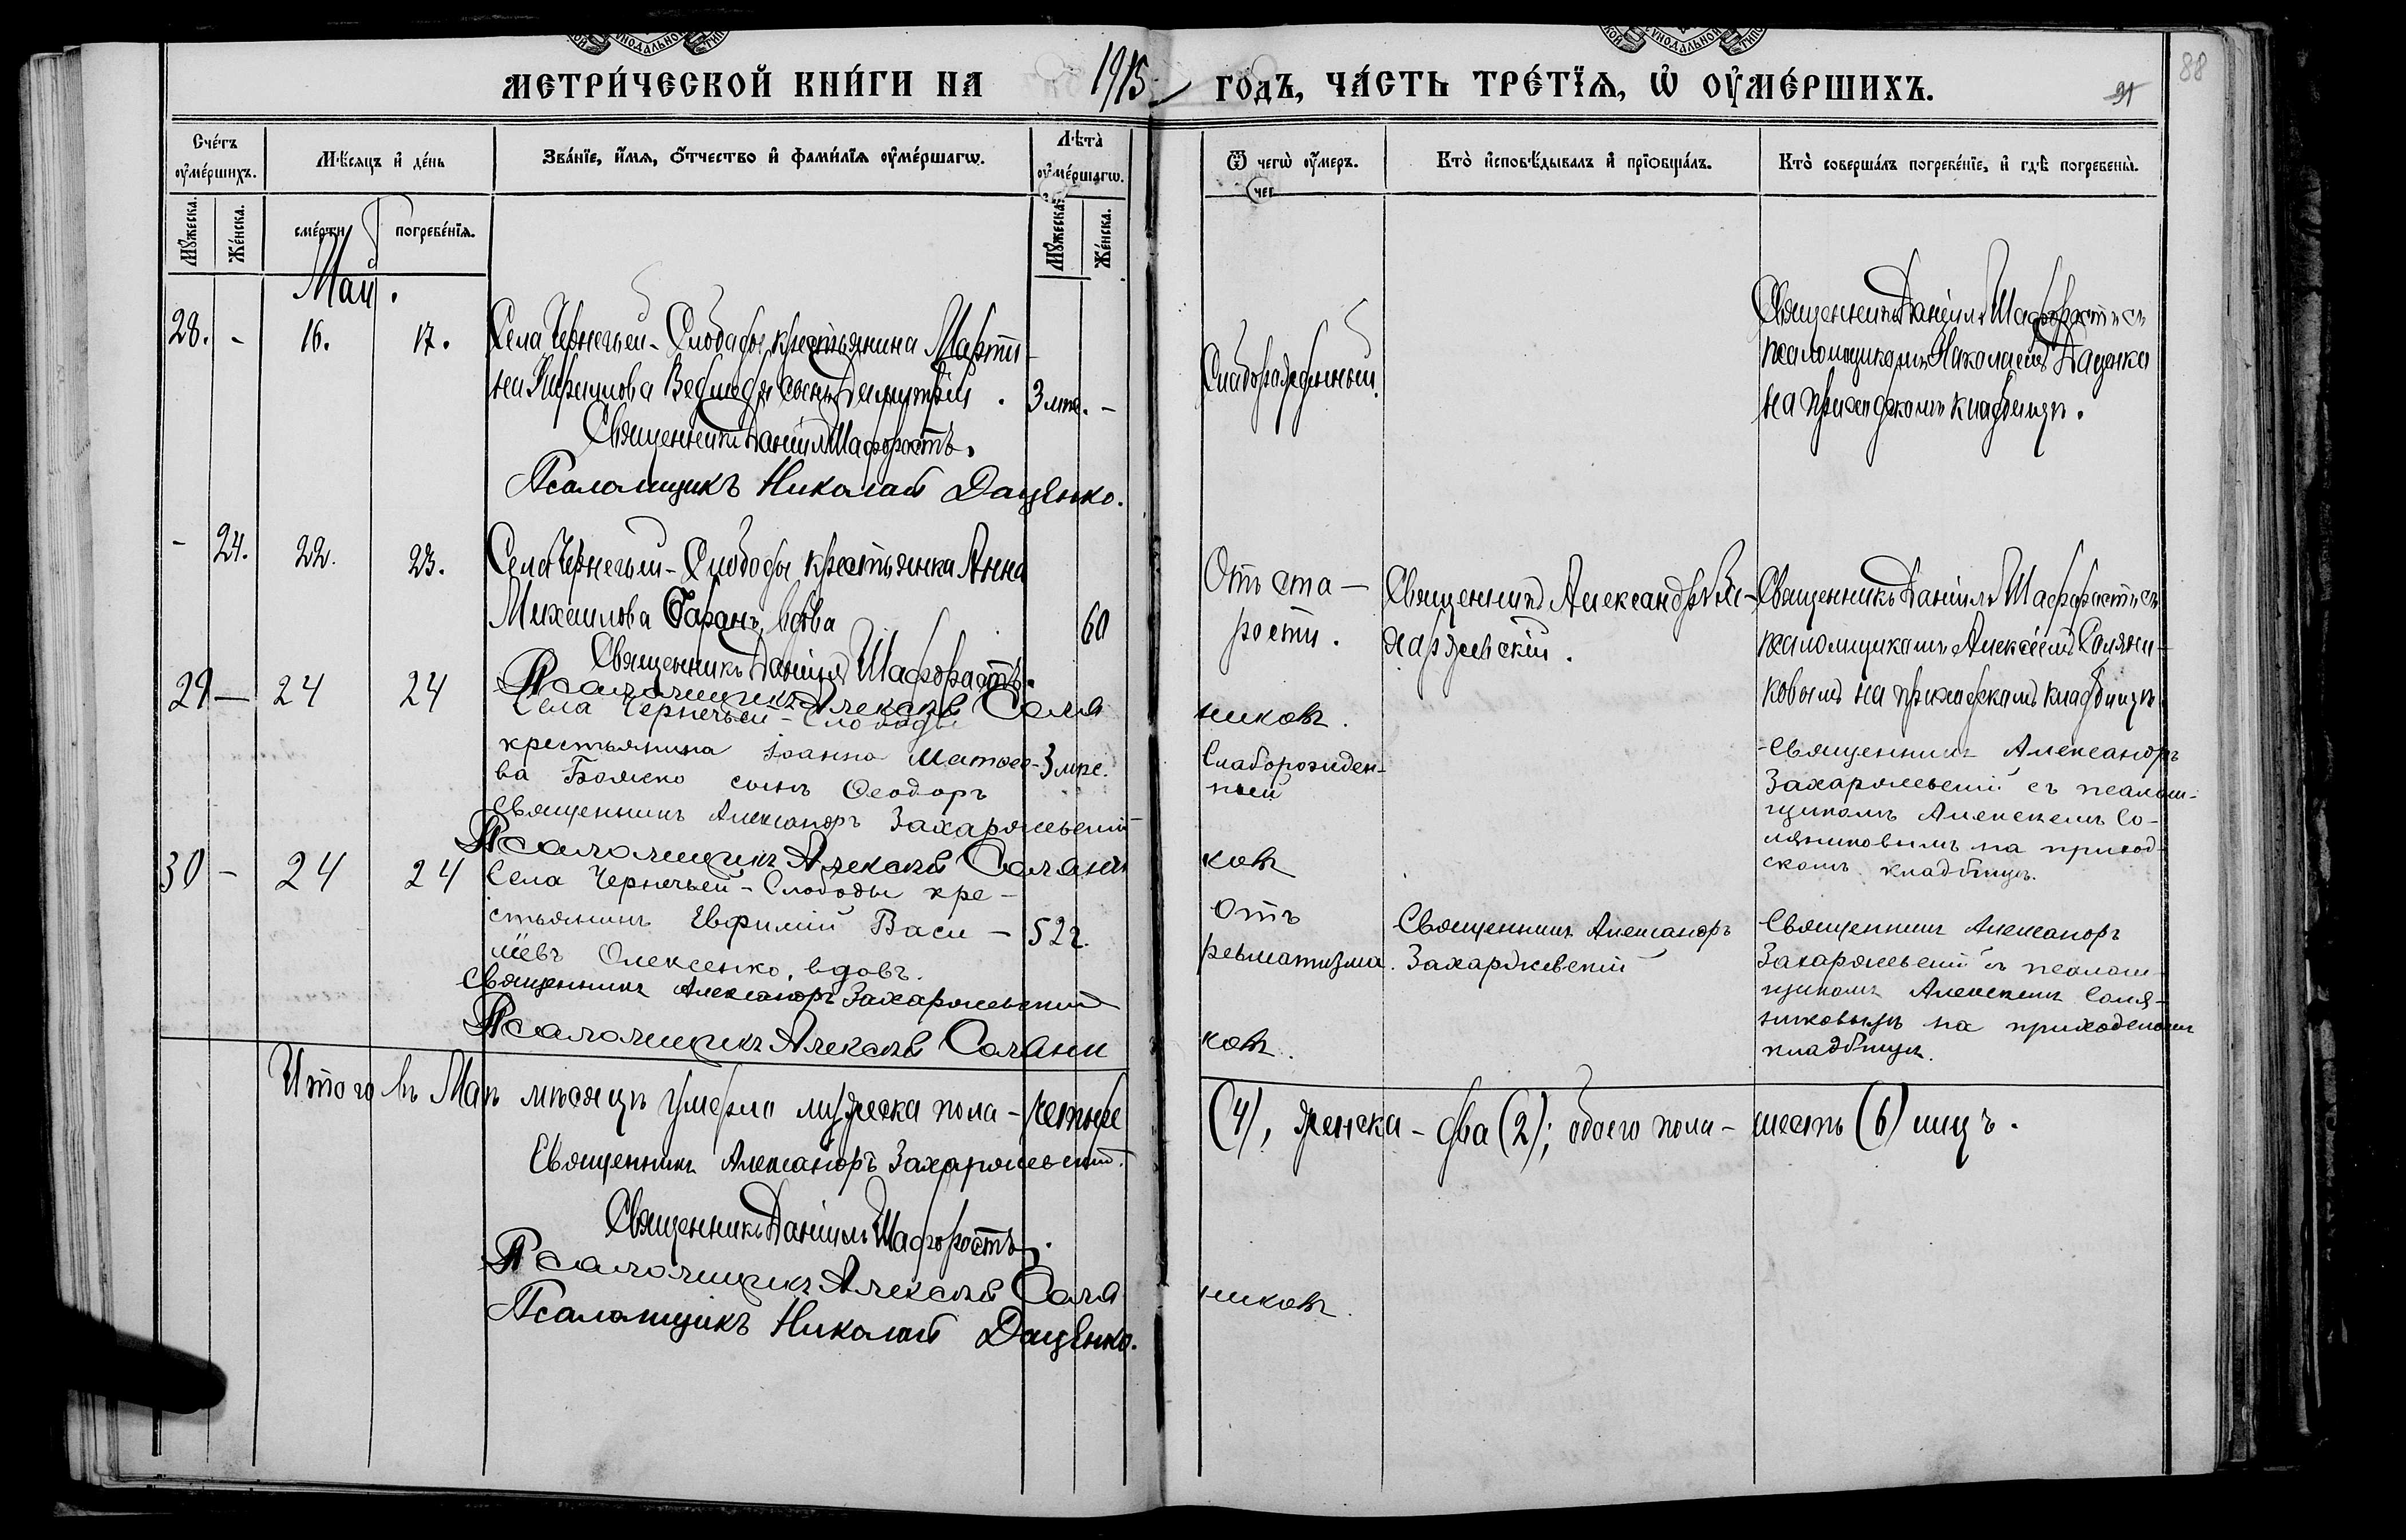 МЕТРИ́ЧЕСКОЙ КНИ́ГИ НА 1915 ГОДЪ, ЧА́СТЬ ТРЕ́ТЇѦ, Ѡ҆ ОУ҆МЕ́РШИХЪ.
91
88
Сче́тъ оу҆ме́ршихъ.
Мѣ́сяцъ и҆ де́нь
Зва́нїе, и҆́мя, ѻ҆́тчество и҆ фами́лїя оу҆ме́ршагѡ.
Лѣта̀ оу҆ме́ршагѡ.
Ѿ чегѡ̀ оу҆́меръ.
Кто̀ и҆сповѣ́дывалъ и҆ прїѻбща́лъ.
Кто̀ соверша́лъ погребе́нїе, и҆ гдѣ̀ погребены̀.
Мꙋ́жеска.
Же́нска.
сме́рти
погребе́нїя.
Мꙋ́жеска.
Же́нска.
Май.
28. - 16. 17. Села Чернечьей-Слободы крестьянина Марти-
на Кириллова Ведмедя сынъ Димитрій. 3 мѣс. -
Священникъ Даніилъ Шафоростъ.
Псаломщикъ Николай Даценко.
Слаборожденный.
Священникъ Даніилъ Шафоростъ съ
псаломщикомъ Николаемъ Даценко
на приходскомъ кладбищѣ.
- 24. 22. 23. Села Чернечьей-Слободы крестьянка Анна
Михаилова Баранъ, вдова 60
Священникъ Даніилъ Шафоростъ.
Псаломщикъ Алексѣй Соля
никовъ.
Отъ ста-
рости.
Священникъ Александръ За-
харжевскій.
Священникъ Даніилъ Шафоростъ съ
псаломщикомъ Алексѣемъ Соляни-
ковымъ на приходскомъ кладбищѣ.
29 - 24 24 Села Чернечьей-Слободы
крестьянина Іоанна Матѳее-
ва Божко сынъ Ѳеодоръ 3 мѣс.
Священникъ Александръ Захаржевскій
Псаломщикъ Алексѣй Соляни
ковъ
Слаборожден-
ный
Священникъ Александръ
Захаржевскій съ псалом-
щикомъ Алексѣемъ Со-
ляниковымъ на приход-
скомъ кладбищѣ.
30 - 24 24 Села Чернечьей-Слободы кре-
стьянинъ Евфимій Васи-
ліевъ Олексенко, вдовъ. 52 г.
Священникъ Александръ Захаржевскій
Псаломщикъ Алексѣй Соляни
ковъ.
Отъ
ревматизма.
Священникъ Александръ
Захаржевскій
Священникъ Александръ
Захаржевскій съ псалом-
щикомъ Алексѣемъ Соля-
никовымъ на приходскомъ
кладбищѣ.
Итого въ Маѣ мѣсяцѣ умерло мужеска пола - четыре (4), женска - два (2); обоего пола - шесть (6) лицъ.
Священникъ Александръ Захаржевскій.
Священникъ Даніилъ Шафоростъ.
Псаломщикъ Алексѣй Соля
никовъ.
Псаломщикъ Николай Даценко.